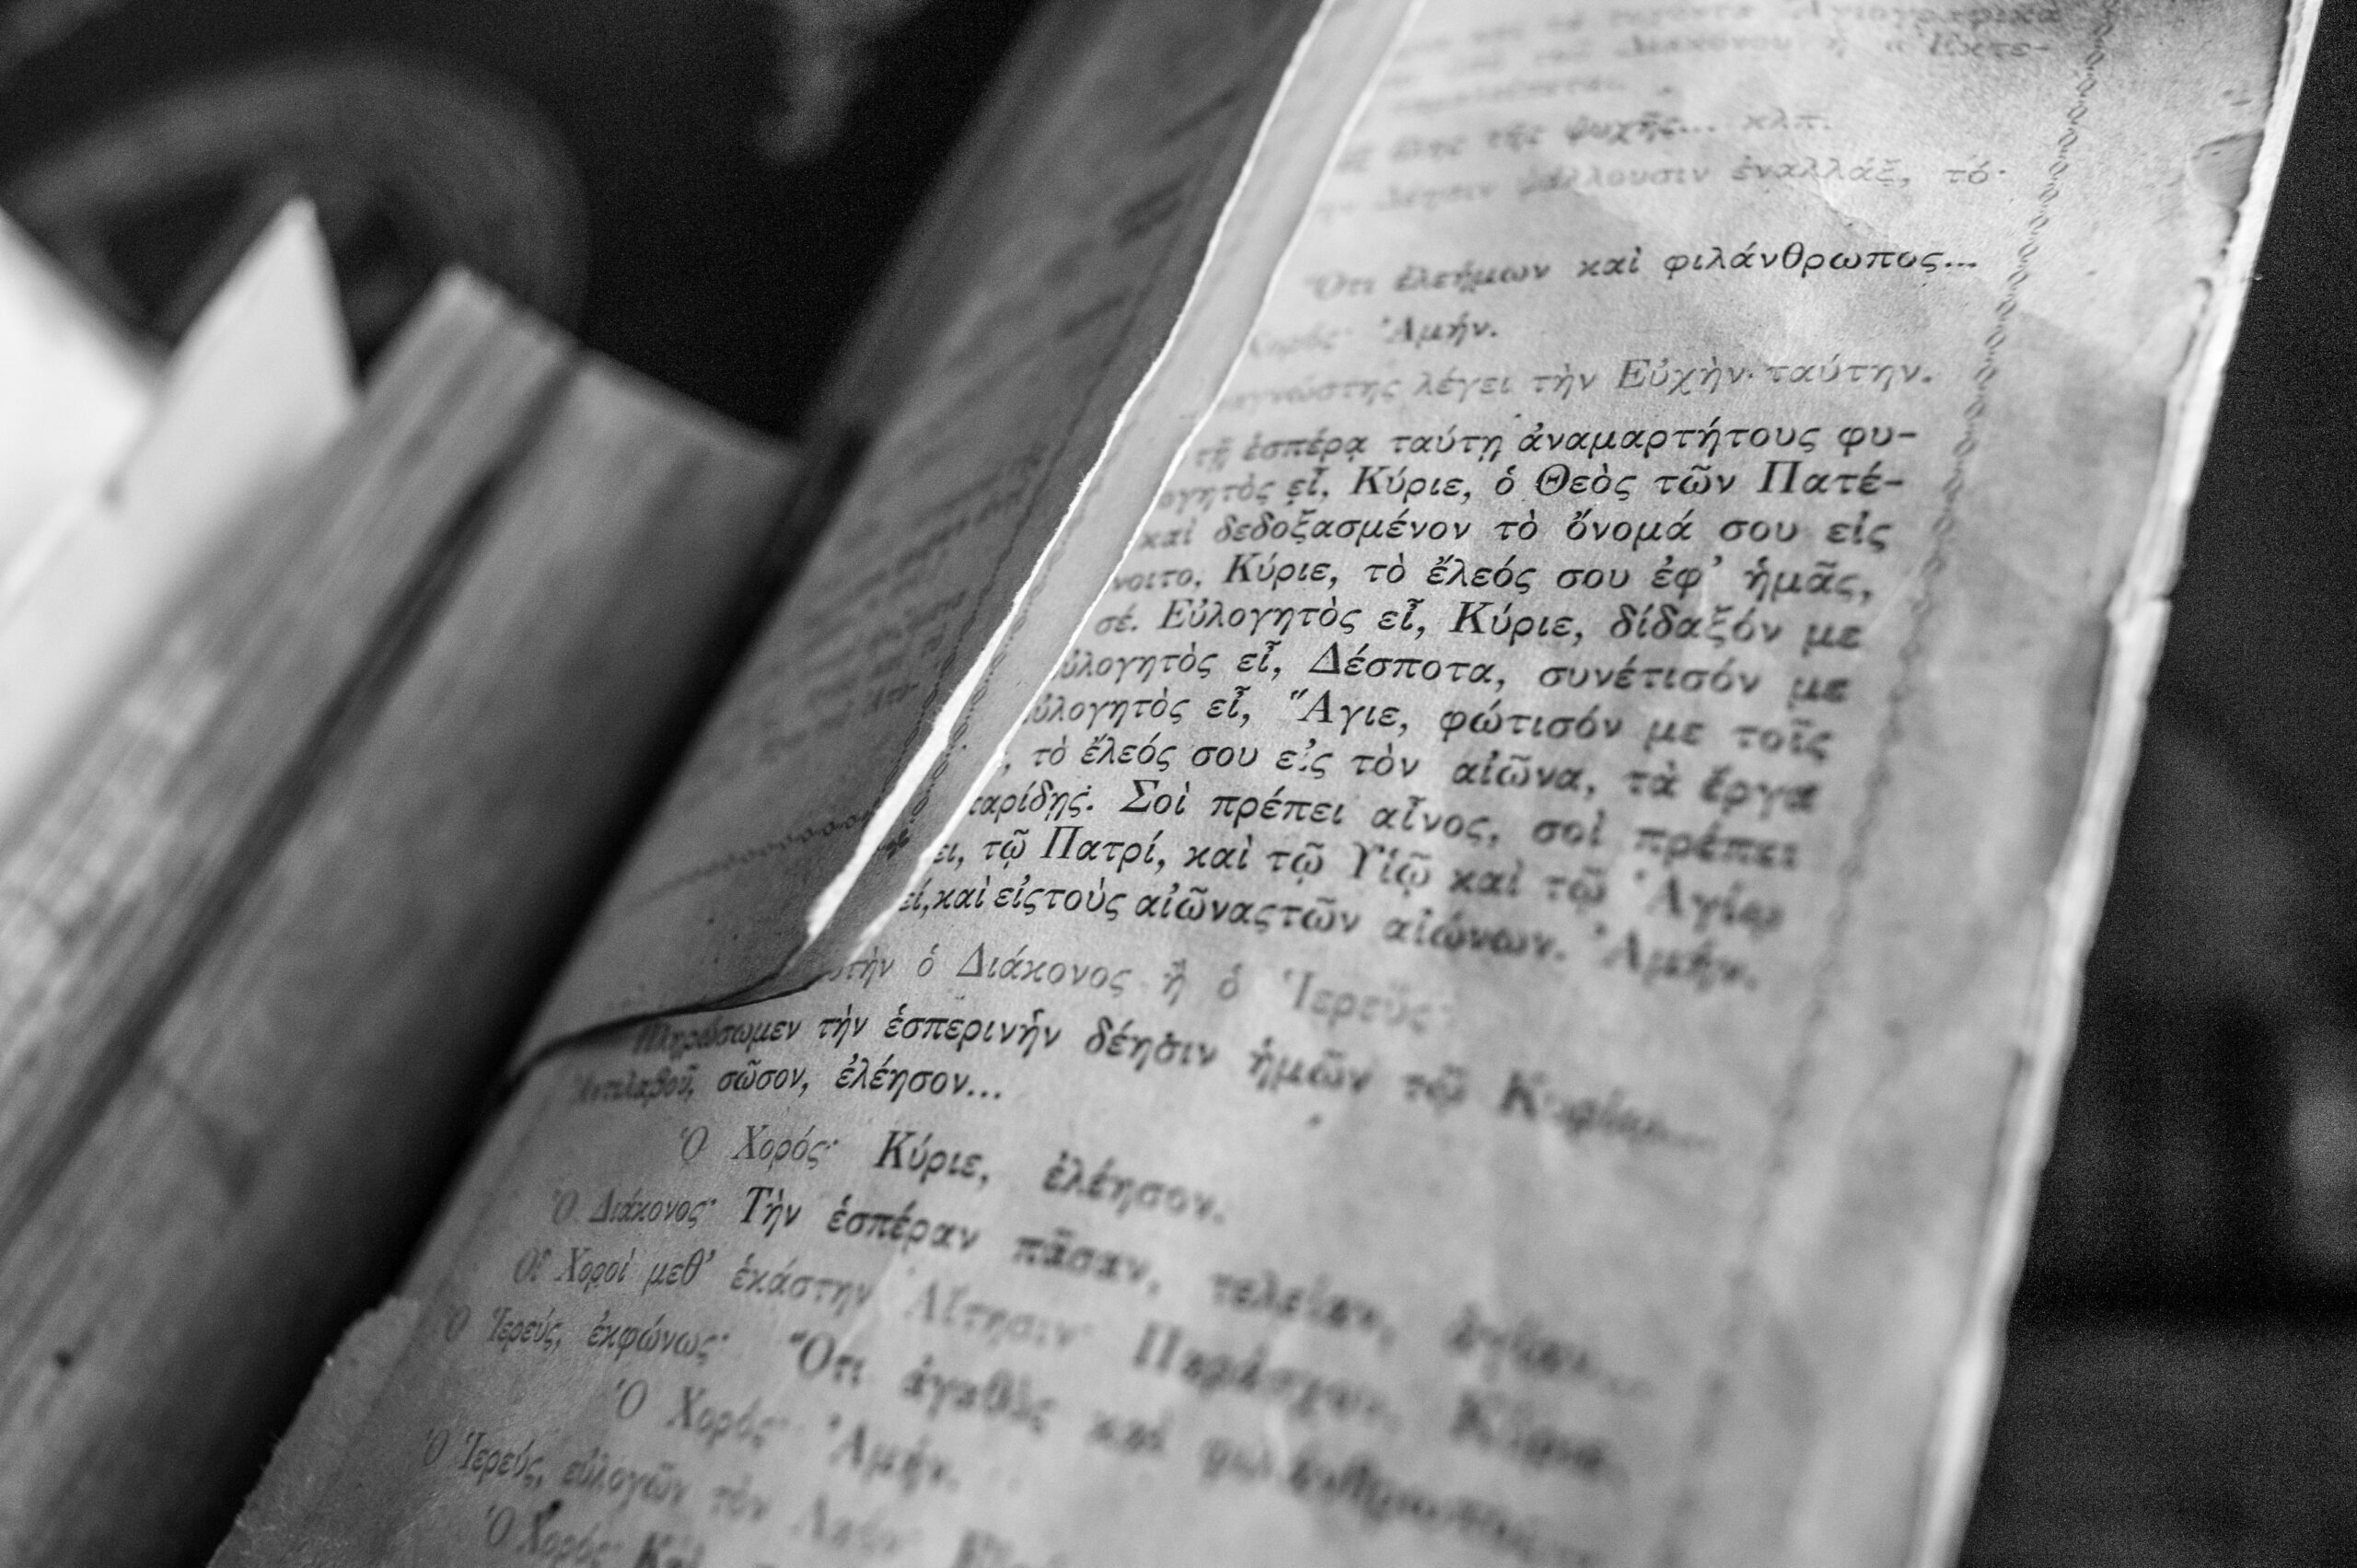 τῆς ψυχῆς... κλπ.
ψάλλουσιν ἐναλλάξ, τό·
Ὅτι ἐλεήμων καὶ φιλάνθρωπος...
Χορός· Ἀμήν.
λέγει τὴν Εὐχὴν ταύτην.
τῇ ἑσπέρᾳ ταύτῃ ἀναμαρτήτους φυ-
ογητὸς εἶ, Κύριε, ὁ Θεὸς τῶν Πατέ-
καὶ δεδοξασμένον τὸ ὄνομά σου εἰς
νοιτο, Κύριε, τὸ ἔλεός σου ἐφ' ἡμᾶς,
σέ. Εὐλογητὸς εἶ, Κύριε, δίδαξόν με
ὐλογητὸς εἶ, Δέσποτα, συνέτισόν με
ὐλογητὸς εἶ, Ἅγιε, φώτισόν με τοῖς
, τὸ ἔλεός σου εἰς τὸν αἰῶνα, τὰ ἔργα
αρίδῃς. Σοὶ πρέπει αἶνος, σοὶ πρέπει
ει, τῷ Πατρί, καὶ τῷ Υἱῷ καὶ τῷ Ἁγίῳ
εί, καὶ εἰς τοὺς αἰῶνας τῶν αἰώνων. Ἀμήν.
τὴν ὁ Διάκονος ἢ ὁ Ἱερεὺς·
Πληρώσωμεν τὴν ἑσπερινὴν δέησιν ἡμῶν τῷ Κυρίῳ...
Ἀντιλαβοῦ, σῶσον, ἐλέησον...
Ὁ Χορός· Κύριε, ἐλέησον.
Ὁ Διάκονος· Τὴν ἑσπέραν πᾶσαν, τελείαν, ἁγίαν...
Οἱ Χοροὶ μεθ' ἑκάστην Αἴτησιν· Παράσχου, Κύριε.
Ὁ Ἱερεύς, ἐκφώνως· Ὅτι ἀγαθὸς καὶ φιλάνθρωπος
Ὁ Χορός· Ἀμήν.
Ὁ Ἱερεύς, εὐλογῶν τὸν Λαόν·
Ὁ Χορός· Καὶ